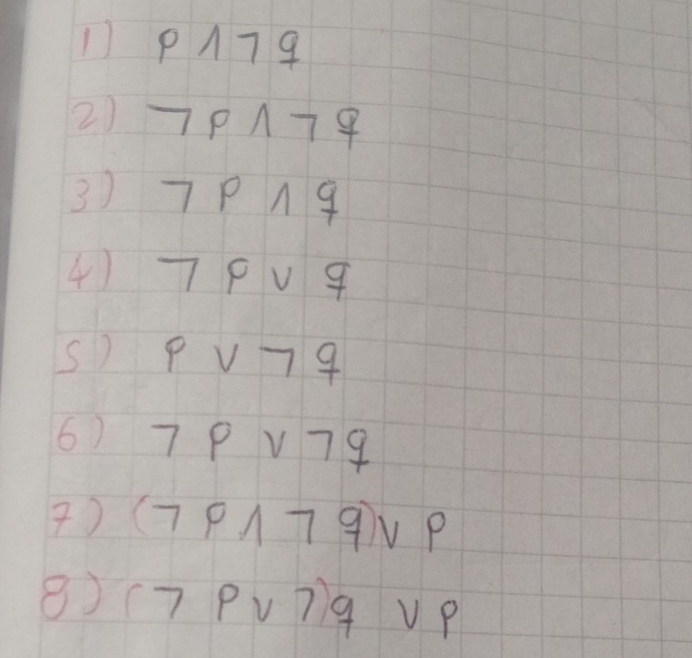 1) p ∧ ¬ q
2) ¬ p ∧ ¬ q
3) ¬ p ∧ q
4) ¬ p ∨ q
5) p ∨ ¬ q
6) ¬ p ∨ ¬ q
7) (¬ p ∧ ¬ q) ∨ p
8) (¬ p ∨ ¬) q ∨ p